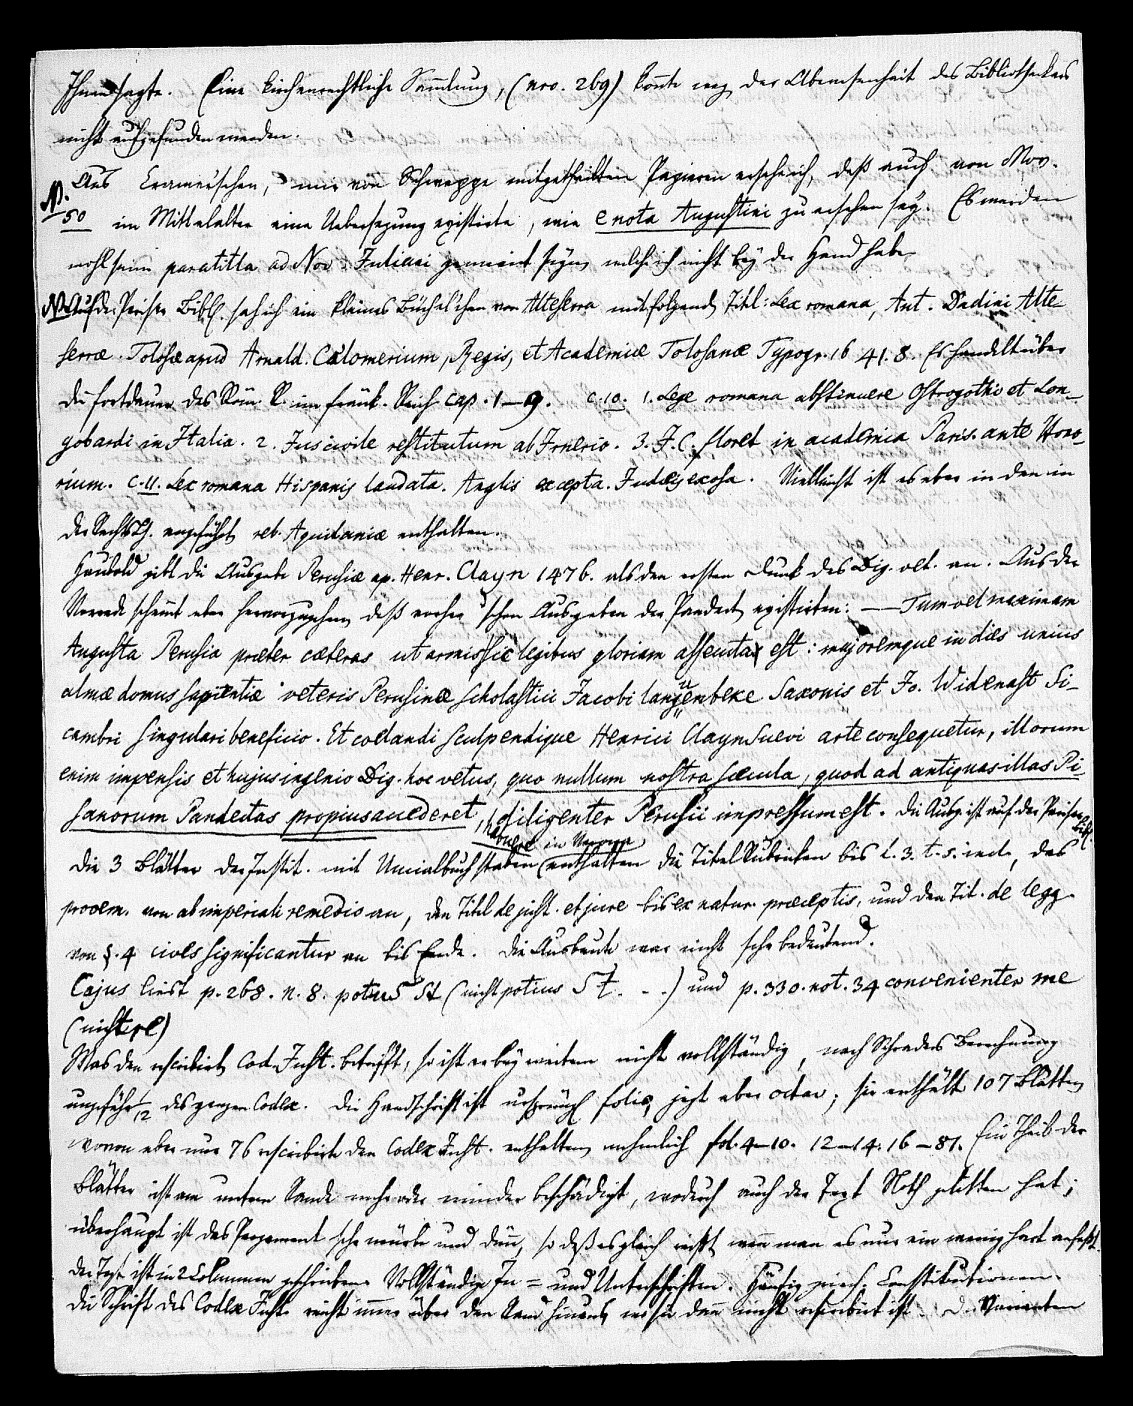 Ihnen sagte. Eine kirchenrechtliche Sammlung, (nro. 269) konte weg. der Abwesenheit des Bibliothekars
nicht aufgefunden werden.
Aus Cramerischen, mir von Schweppe mitgetheilten Papieren erscheint, daß auch von Nov.
N. 50 im Mittelalter eine Uebersezung existirte, wie e nota Augustini zu ersehen sey. Es werden
wohl seine paratitla ad Nov. Juliani gemeint seyn, welche ich nicht bey der Hand habe.
Auf der Pariser Bibl. sah ich ein kleines Büchelchen von Alteserra mit folgend. Titl: Lex romana, Ant. Dadini Alte-
serræ. Tolosæ apud Arnald. Colomerium, Regis, et Academiæ Tolosanæ Typogr. 1641. 8. Es handelt über
die Fortdauer des Röm. R. im fränk. Reich cap. 1–9. c. 10. 1. Lege romana abstinuere Ostrogothi et Lon-
gobardi in Italia. 2. Jus civile restitutum ab Irnerio. 3. J. C. floret in academia Paris. ante Hono-
rium. c. 11. Lex romana Hispanis laudata. Anglis accepta. Judæis exosa. Vielleicht ist es aber in den in
der RechtsG. angeführt. reb. Aquitaniæ enthalten.
Haubold gibt die Ausgabe Perusiæ ap. Henr. Clayn 1476. als den ersten Druck des Dig. vet. an. Aus der
Vorrede scheint aber hervorzugehen daß vorher schon Ausgaben der Pandect. existirten: — Tum vel maximam
Augusta Perusia præter cæteras ut armis sic legibus gloriam assecuta est: majoremque in dies unius
almæ domus sapientiæ veteris Perusinæ scholastici Jacobi langenbeke Saxonis et Jo. Widenast Si-
cambri singulari beneficio. Et coelandi sculpendique Henrici Clayn Suevi arte consequetur, illorum
enim impensis et hujus ingenio Dig. hoc vetus, quo nullum nostra sæcula, quod ad antiquas illas Pi-
sanorum Pandectas propius accederet, habuere, diligenter Perusii impressum est. Die Ausg. ist auf der Pariser Bibl.
Die 3 Blätter der Instit. mit Uncialbuchstaben in Verona enthalten die Titel Rubriken bis l. 3. t. 5. incl., das
prooem. von ab imperiali remedio an, den Titel de just. et jure bis ex natur. præceptis, und den Tit. de legg.
von §. 4 cives significantur an bis Ende. Die Ausbeute war nicht sehr bedeutend.
Cajus liest p. 268. n. 8. potius St (nicht potius St. - -) und p. 330. not. 34 convenienter me
(nicht re)
Was den rescribirt. Cod. Just. betrifft, so ist er bey weitem nicht vollständig, nach Schraders Berechnung
ungefähr 1/2 des ganzen Codex. Die Handschrift ist ursprüngl. folio, jezt aber octav; sie enthält 107 Blätter,
wovon aber nur 76 rescribirte den Codex Just. enthalten nehmlich fol. 4–10. 12–14. 16–81. Ein Theil der
Blätter ist am untern Rande mehr oder minder beschädigt, wodurch auch der Text Noth gelitten hat;
überhaupt ist das Pergament sehr mürbe und dün, so daß es gleich reißt wen man es nur ein wenig hart anfaßt.
Der Text ist in 2 Columnen geschrieben. Vollständige In- und Unterschriften. Häufig griech. Constitutionen.
Die Schrift des Codex Just. reicht immer über den Rand hinaus, wo sie dann nicht rescribirt ist. Die Varianten